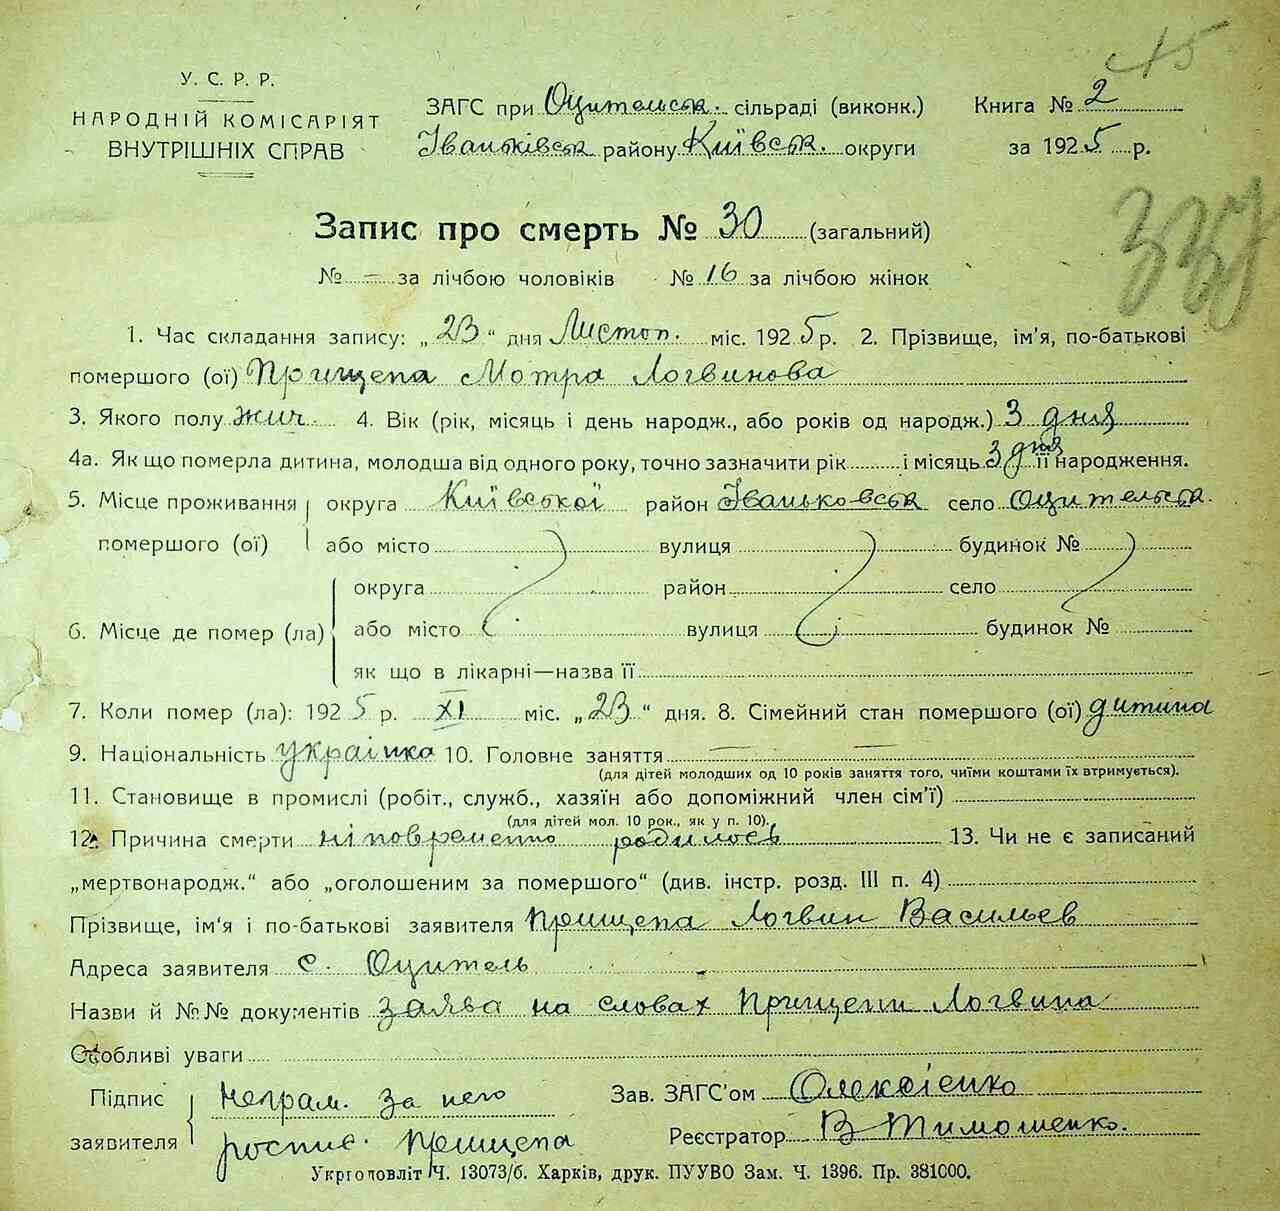 15
У. С. Р. Р.
НАРОДНІЙ КОМІСАРІЯТ
ВНУТРІШНІХ СПРАВ
ЗАГС при Оцительськ. сільраді (виконк.)
Іваньківськ району Київськ. округи
Книга № 2
за 1925 р.
337
Запис про смерть № 30 (загальний)
№ — за лічбою чоловіків № 16 за лічбою жінок
1. Час складання запису: „23“ дня Листоп. міс. 1925 р. 2. Прізвище, ім'я, по-батькові
помершого (ої) Прищепа Мотра Логвинова
3. Якого полу жин. 4. Вік (рік, місяць і день народж., або років од народж.) 3 дня
4а. Як що померла дитина, молодша від одного року, точно зазначити рік і місяць 3 дня її народження.
5. Місце проживання округа Київської район Іваньковськ село Оцительськ.
помершого (ої) або місто вулиця будинок №
округа район село
6. Місце де помер (ла) або місто вулиця будинок №
як що в лікарні—назва її
7. Коли помер (ла): 1925 р. XI міс. „23“ дня. 8. Сімейний стан помершого (ої) дитина
9. Національність українка 10. Головне заняття — —
(для дітей молодших од 10 років заняття того, чиїми коштами їх втримується).
11. Становище в промислі (робіт., служб., хазяїн або допоміжний член сім'ї)
(для дітей мол. 10 рок., як у п. 10).
12. Причина смерти ніповременно родилось 13. Чи не є записаний
„мертвонародж.“ або „оголошеним за помершого“ (див. інстр. розд. III п. 4)
Прізвище, ім'я і по-батькові заявителя Прищепа Логвин Васильев
Адреса заявителя с. Оцитель
Назви й №№ документів заява на словах Прищепи Логвина
Особливі уваги
Підпис Неграм. за него
заявителя роспис. Прищепа
Зав. ЗАГС'ом Олексієнко
Реєстратор В Тимошенко.
Укрголовліт Ч. 13073/б. Харків, друк. ПУУВО Зам. Ч. 1396. Пр. 381000.